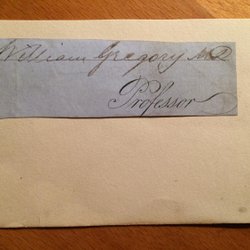 William Gregory MD
Professor